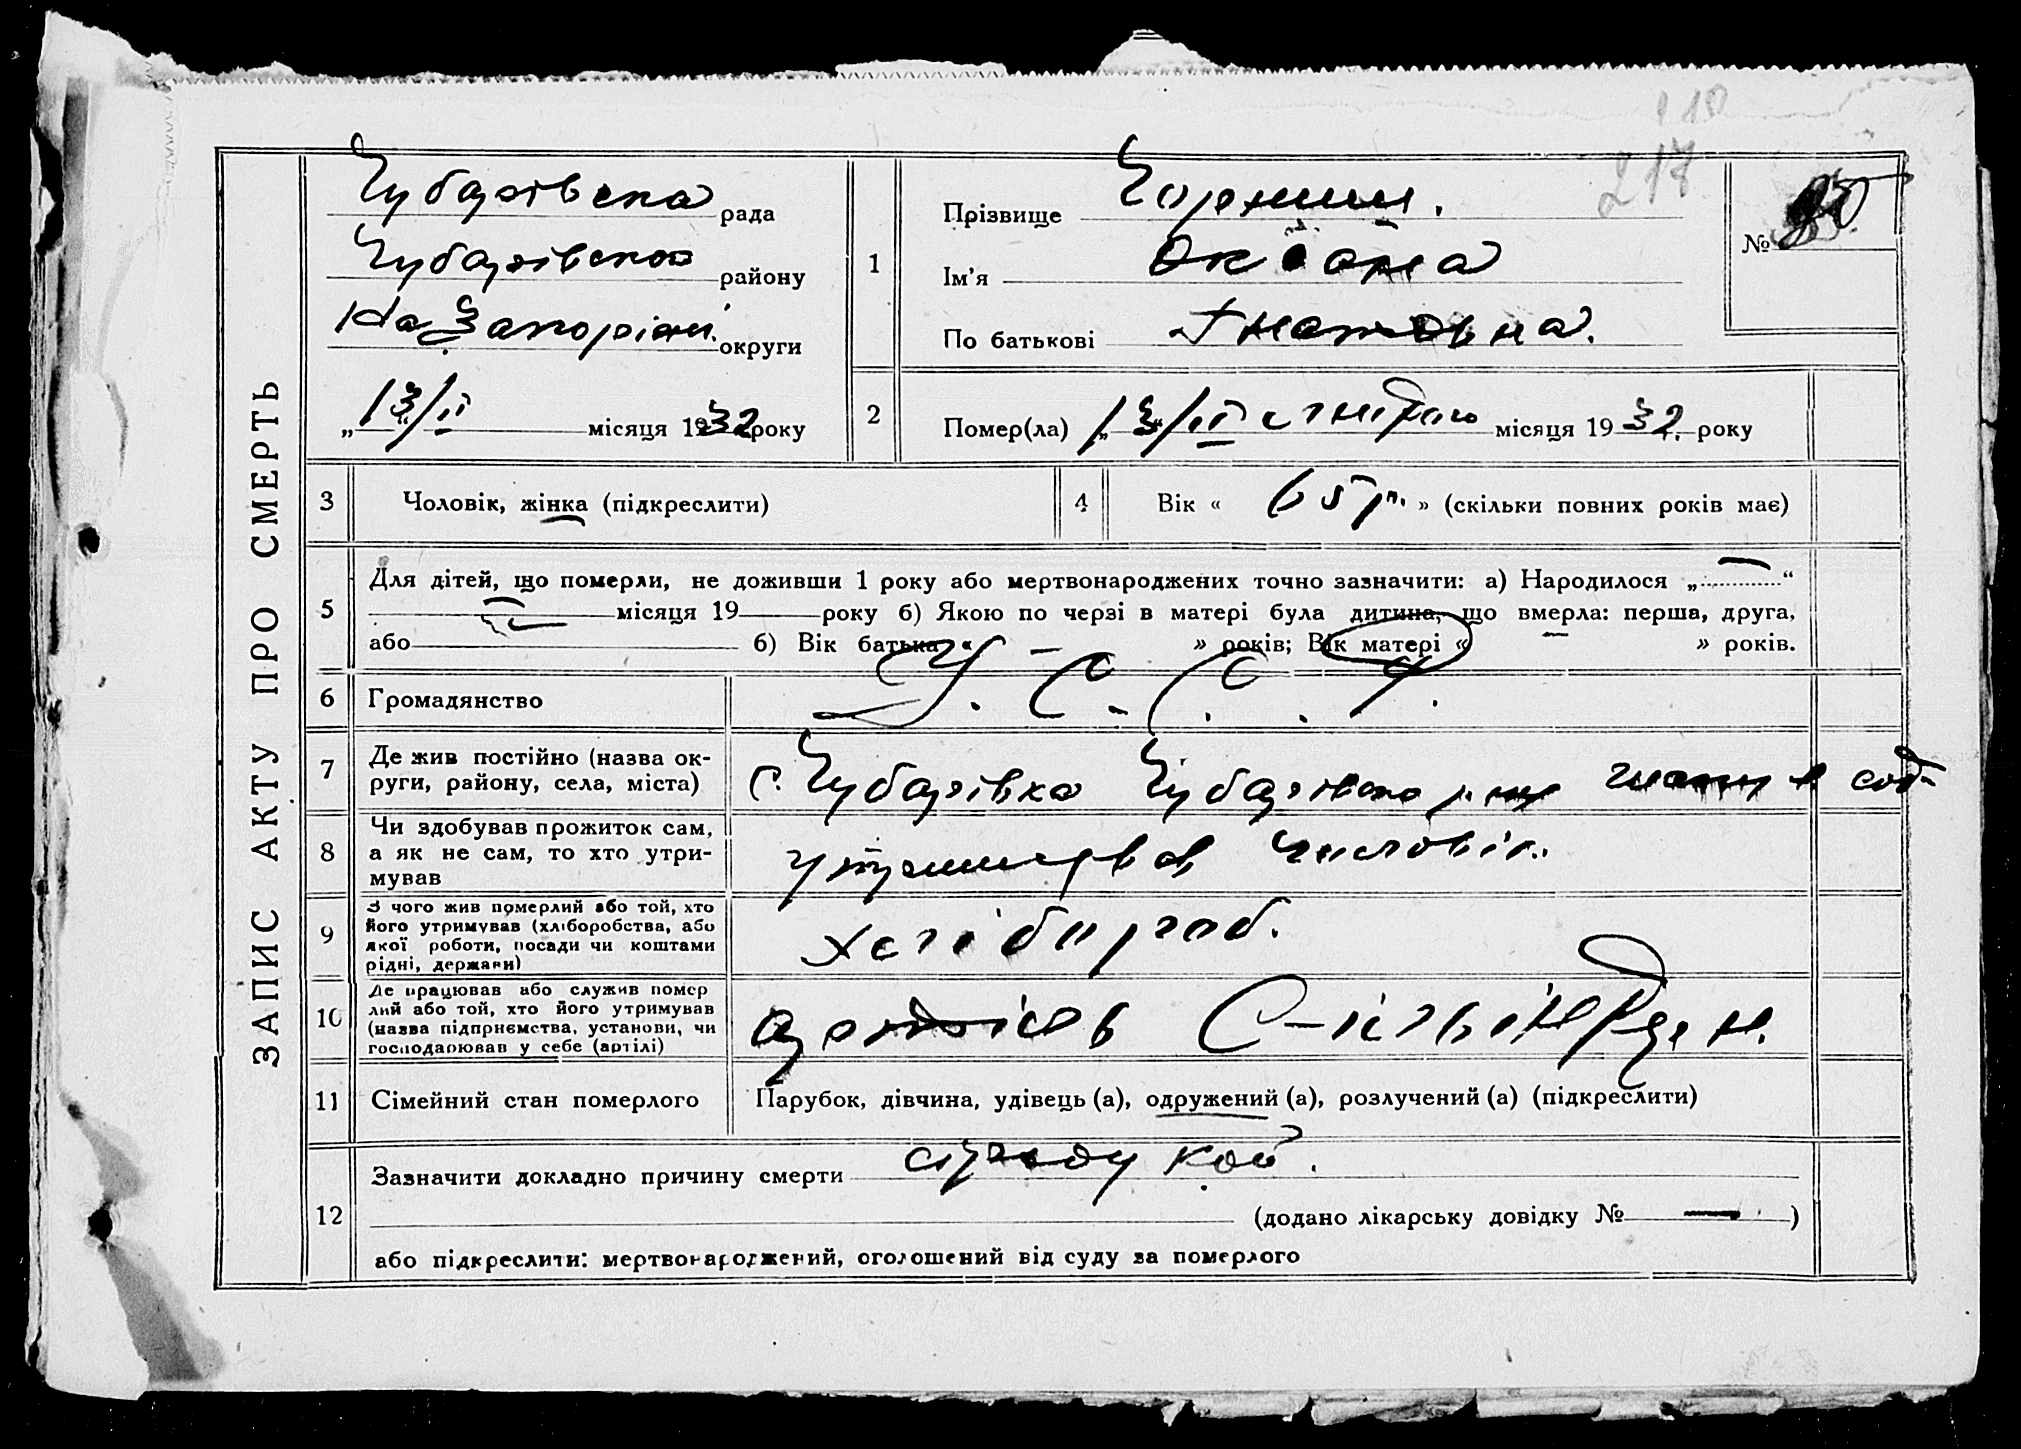 217
ЗАПИС АКТУ ПРО СМЕРТЬ
Чубарівська рада
Чубарівского району
на Запоріжжі округи
„13/II місяця 1932 року
№
1
Прізвище
Ім'я Оксана
По батькові Гнатовна.
2
Помер(ла) „13/II місяця 1932 року
3
Чоловік, жінка (підкреслити)
4
Вік « 65 р. » (скільки повних років має)
5
Для дітей, що померли, не доживши 1 року або мертвонароджених точно зазначити: а) Народилося „—“
місяця 19 року б) Якою по черзі в матері була дитина, що вмерла: перша, друга,
або б) Вік батька « — » років; Вік матері « — » років.
6
Громадянство
У. С. С. Р.
7
Де жив постійно (назва ок-
руги, району, села, міста)
с. Чубарівка Чубарівско
8
Чи здобував прожиток сам,
а як не сам, то хто утри-
мував
утримував чиловік.
9
З чого жив померлий або той, хто
його утримував (хліборобства, або
якої роботи, посади чи коштами
рідні, держави)
хліборроб.
10
Де працював або служив помер
лий або той, хто його утримував
(назва підприємства, установи, чи
господарював у себе (артілі)
11
Сімейний стан померлого
Парубок, дівчина, удівець (а), одружений (а), розлучений (а) (підкреслити)
12
Зазначити докладно причину смерти
(додано лікарську довідку № — )
або підкреслити: мертвонароджений, оголошений від суду за померлого